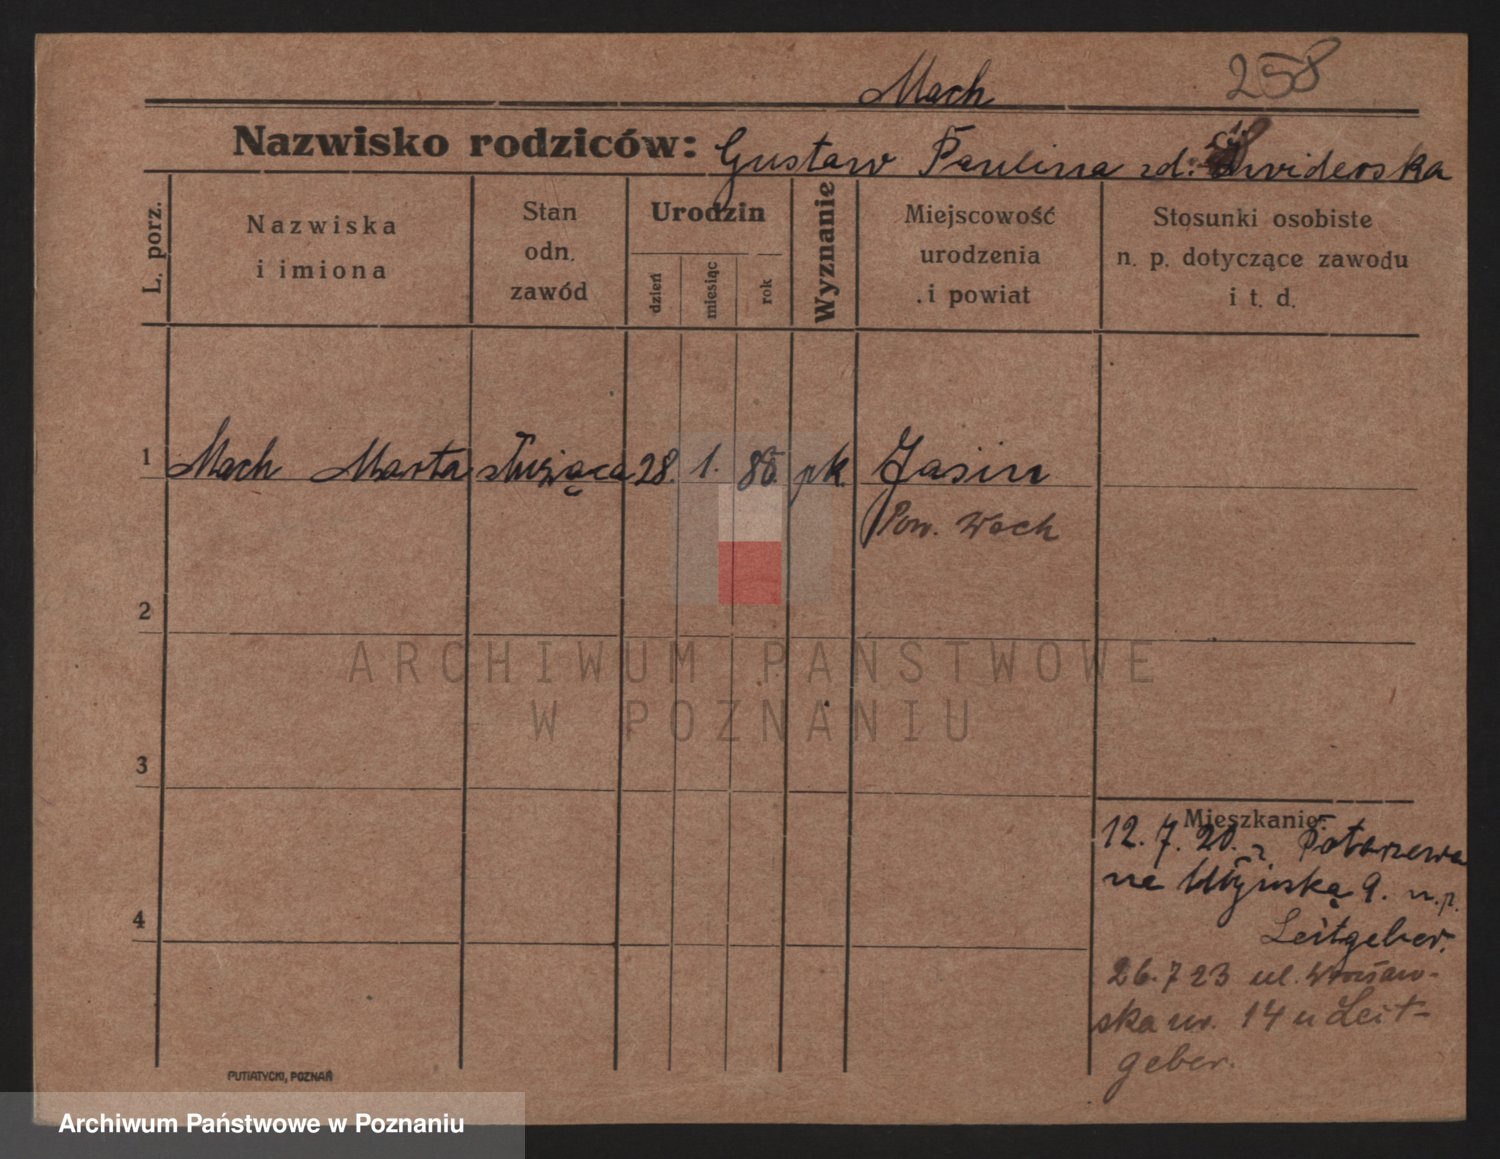 258
Mach
Nazwisko rodziców: Gustaw Paulina zd. Świderska
L. porz.
Nazwiska
i imiona
Stan
odn.
zawód
Urodzin
dzień
miesiąc
rok
Wyznanie
Miejscowość
urodzenia
i powiat
Stosunki osobiste
n. p. dotyczące zawodu
i t. d.
1 Mach Marta służąca 28. 1. pk. Jasin
Pow. Wsch
2
ARCHIWUM PAŃSTWOWE
W POZNANIU
3
Mieszkanie:
12. 7. 20. z Potarzewa
na 9. n.p.
Leitgeber.
4
26. 7 23 ul.
ska nr. 14 u Leit-
geber.
PUTIATYCKI, POZNAŃ
Archiwum Państwowe w Poznaniu